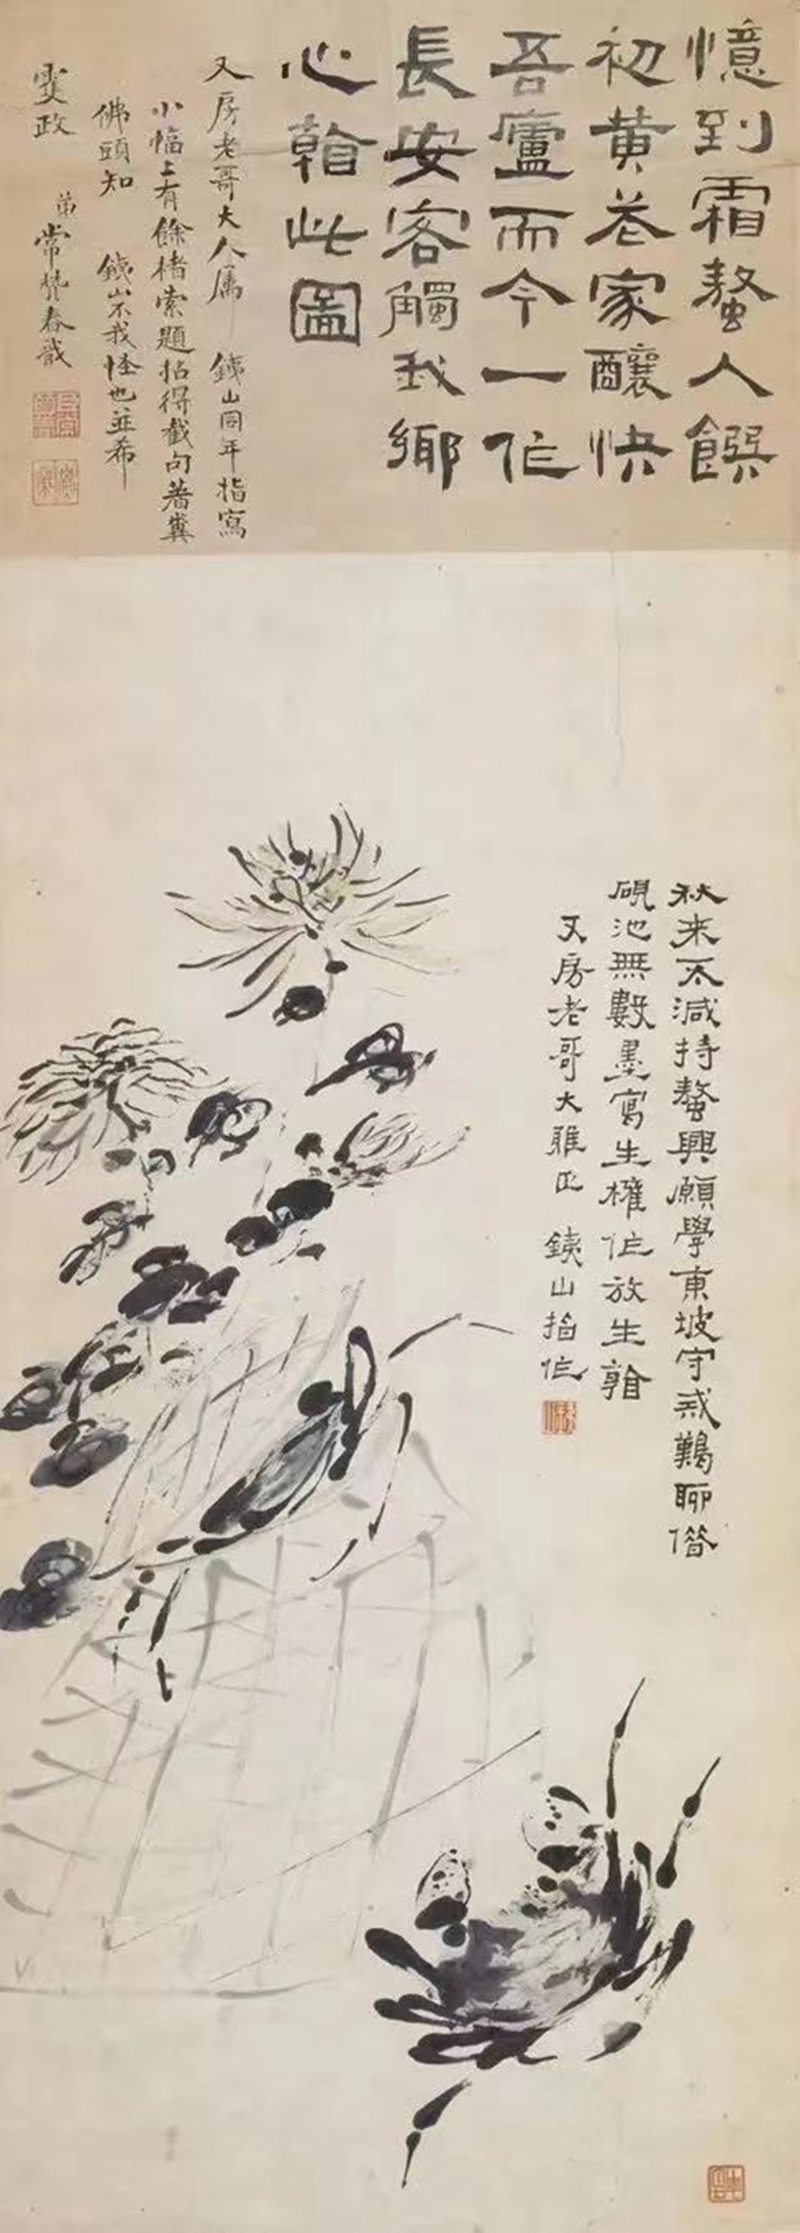 憶到霜螯入饌
初黄花家釀快
吾廬而今一作
長安客觸我鄉
心看此圖
又房老哥大人屬 銕山同年指寫
小幅上有餘楮索題拈得截句著糞
佛頭知 銕山不我怪也並希
政 弟常春
秋来不減持螯興願學東坡守戒難聊借
硯池無數墨寫生權作放生看
又房老哥大雅正 銕山指作